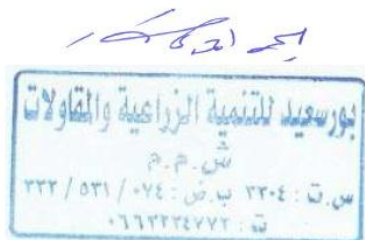 بورسعيد للتنمية الزراعية والمقاولات
ش.م.م
س.ت : ٣٣٠٤ ب.ض : ٠٧٤ / ٥٣١ / ٣٣٣
ت : ٠٦٦٣٢٣٤٧٧٢